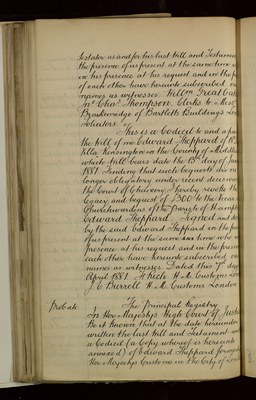 testator as and for his last Will and Testament
the presence of us present at the same time
in his presence at his request and in the
of each other have hereunto subscribed
names as witnesses Willm Treat
Jno Chas Thompson Clerks to Messrs
of Bartletts Buildings
Solicitors
This is a Codicil to and a
the Will of me Edward Sheppard of
Villa Kensington in the County of Middle
which Will bears date the 13th day of
1881 Finding that such bequests are no
longer obligatory under recent decisions
the Court of Chancery I hereby revoke the
legacy and bequest of £300 to the
Churchwardens of the parish of
Edward Sheppard Signed and
by the said Edward Sheppard in the
of us present at the same time who in
presence at his request and in the presence
each other have hereunto subscribed
names as witnesses Dated this 7th day
April 1881 H. M. Customs
J. C. Burrell H. M. Customs London
Probate
The Principal Registry
In Her Majestys High Court of Justice
Be it known that at the date hereunder
written the last Will and Testament
a Codicil (a Copy whereof is hereunto
annexed) of Edward Sheppard formerly
Her Majestys Customs in the City of